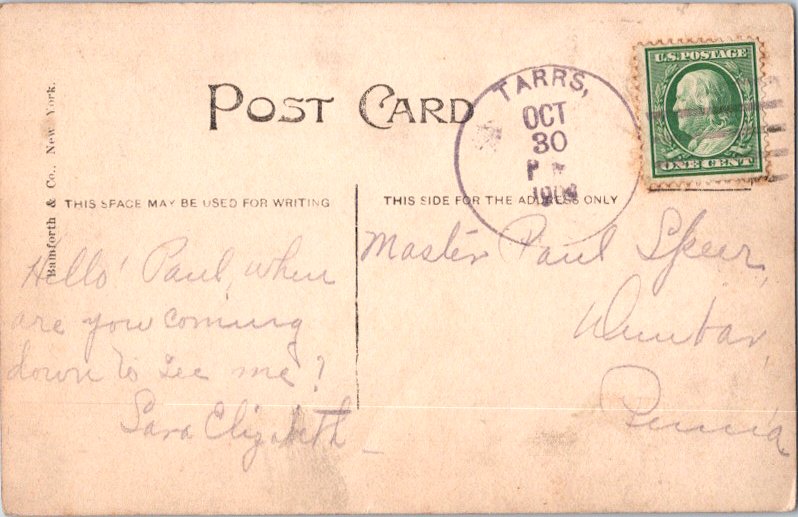 POST CARD
TARRS,
OCT
30
P M
U.S. POSTAGE
ONE CENT
Bamforth & Co., New York.
THIS SPACE MAY BE USED FOR WRITING
THIS SIDE FOR THE ADDRESS ONLY
Hello! Paul, when
are you coming
down to see me?
Sara Elizabeth
Master Paul Speer,
Dunbar,
Penna